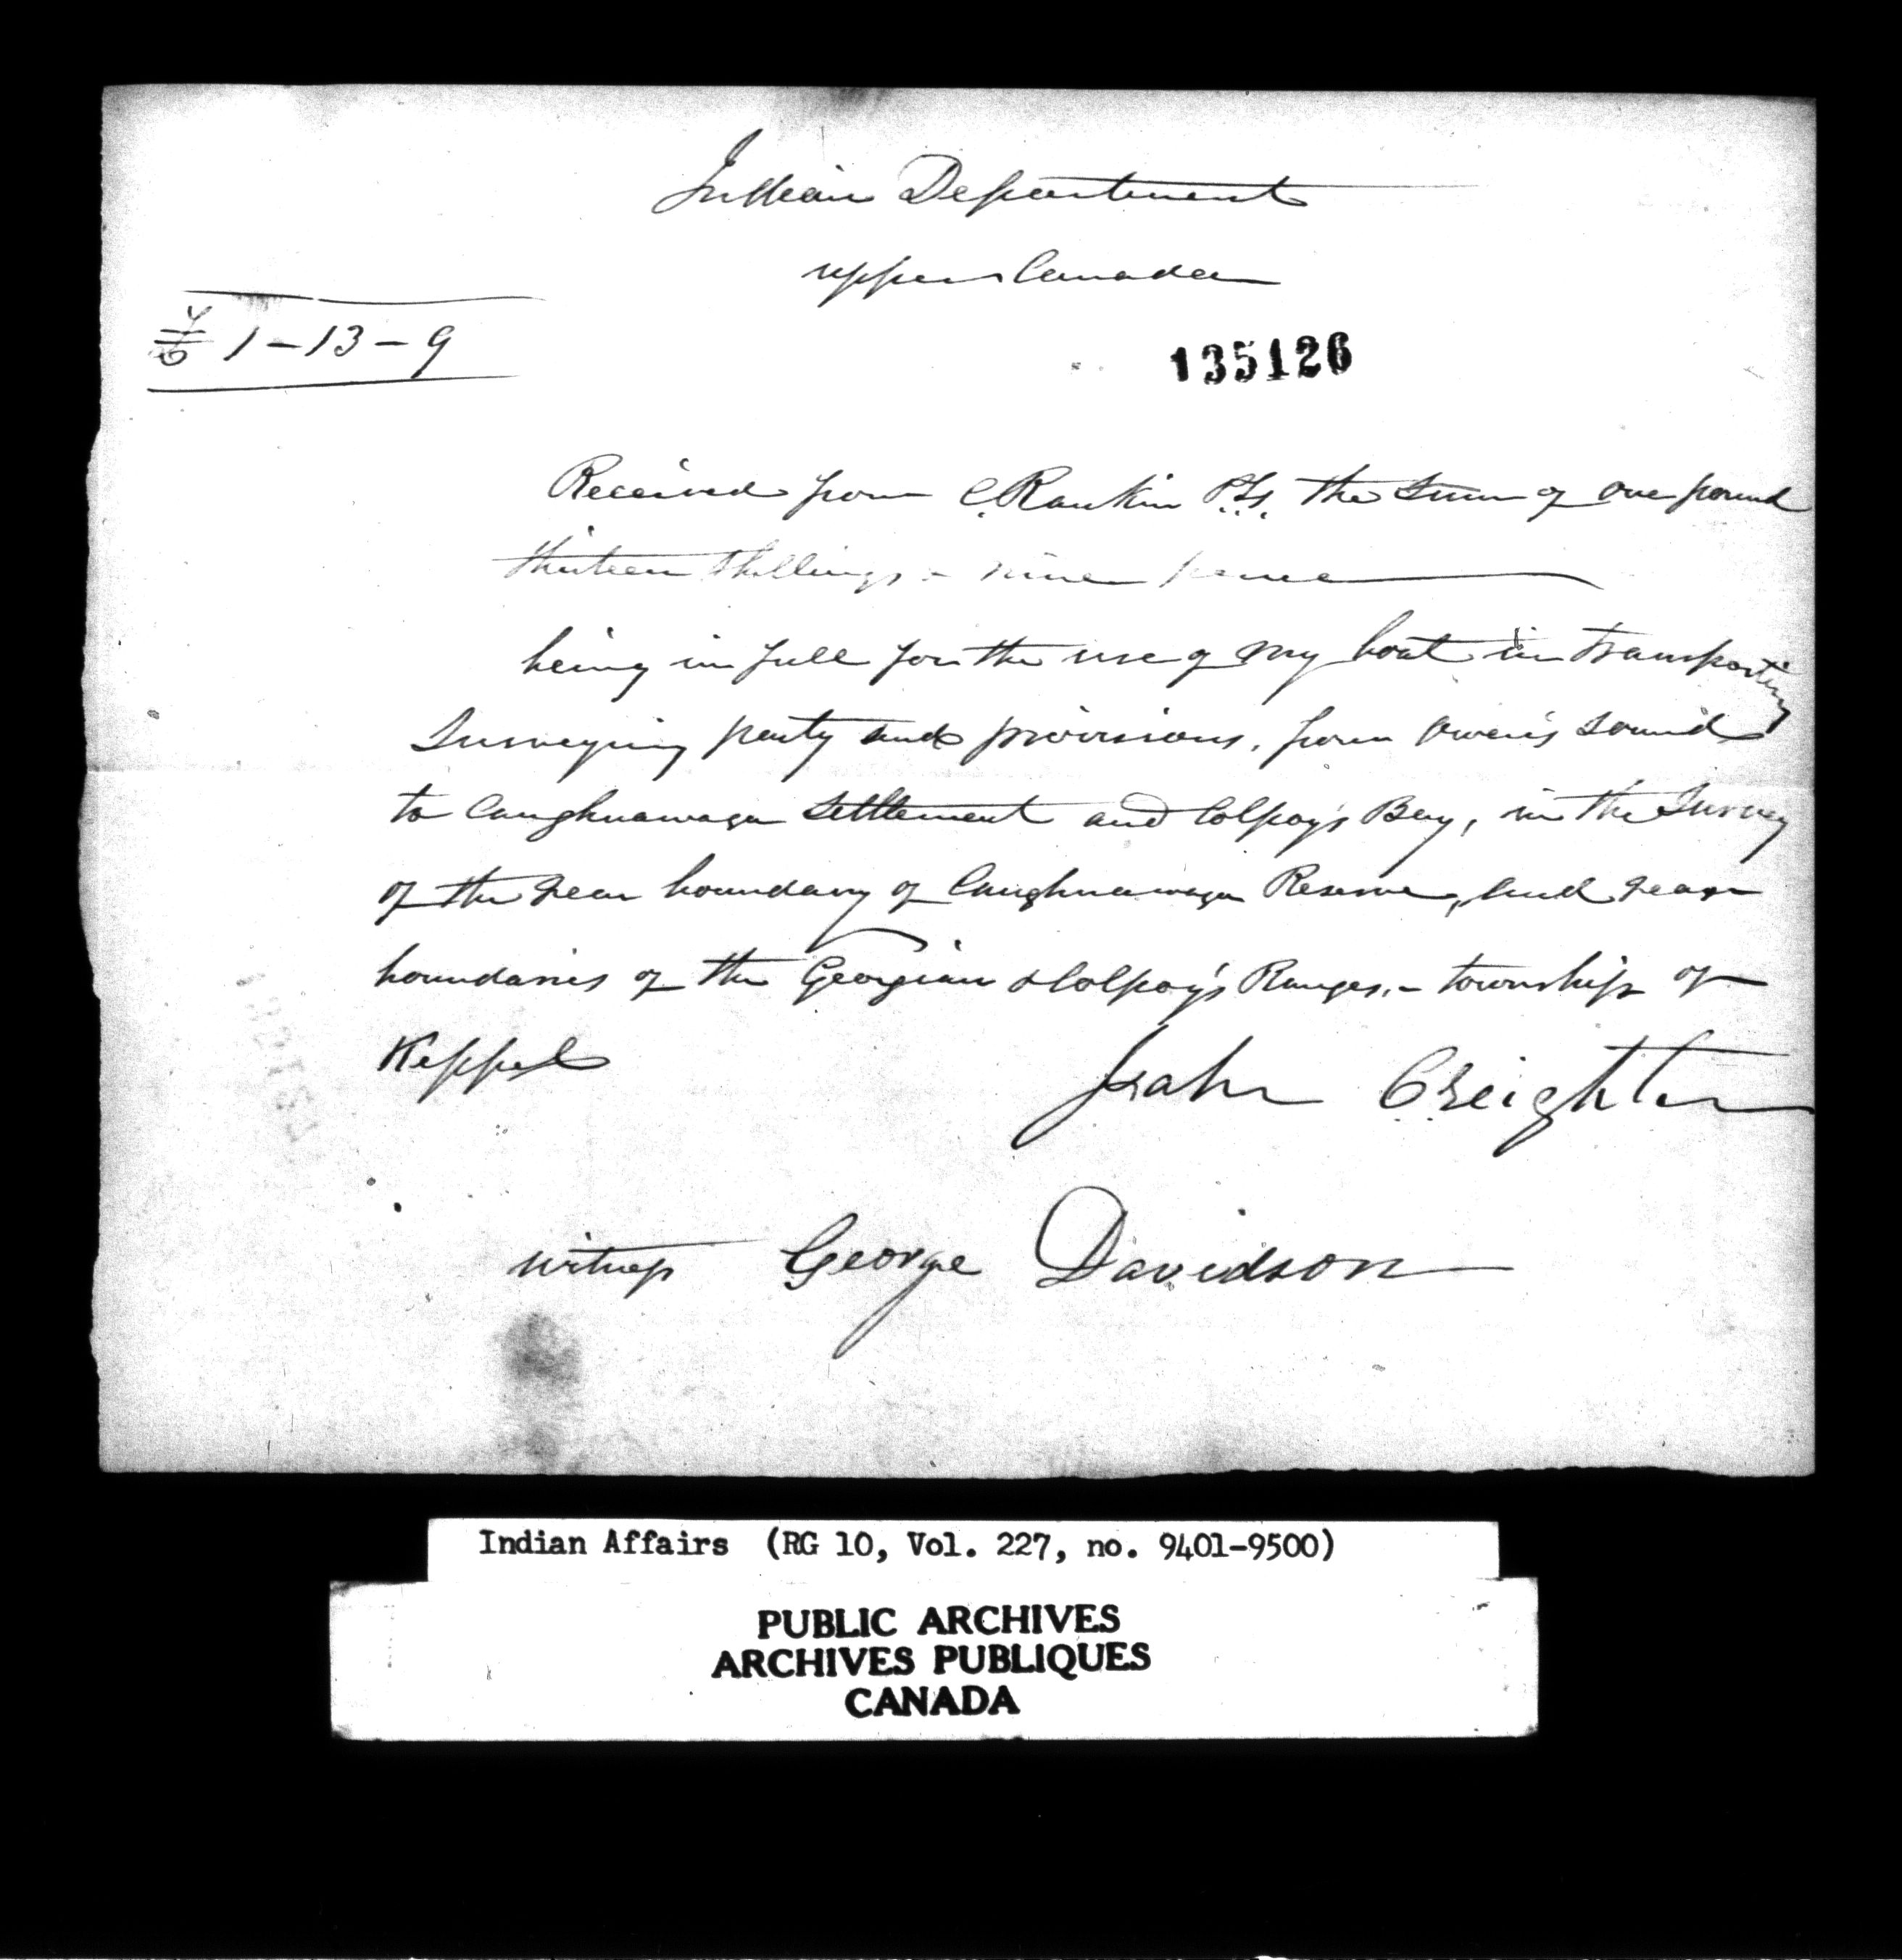 Indian Department
upper Canada
£ 1-13-9
135126
Received from C. Rankin P.L.S. the Sum of one pound
thirteen Shillings - nine pence
being in full for the use of my boat in transporting
Surveying party and provisions, from Owen's Sound
to Caughnawaga Settlement and Colpoy's Bay, in the Survey
of the rear boundary of Caughnawaga Reserve, and rear
boundaries of the Georgian & Colpoy's Ranges, - township of
Keppel
John Creighton
witness George Davidson
Indian Affairs (RG 10, Vol. 227, no. 9401-9500)
PUBLIC ARCHIVES
ARCHIVES PUBLIQUES
CANADA